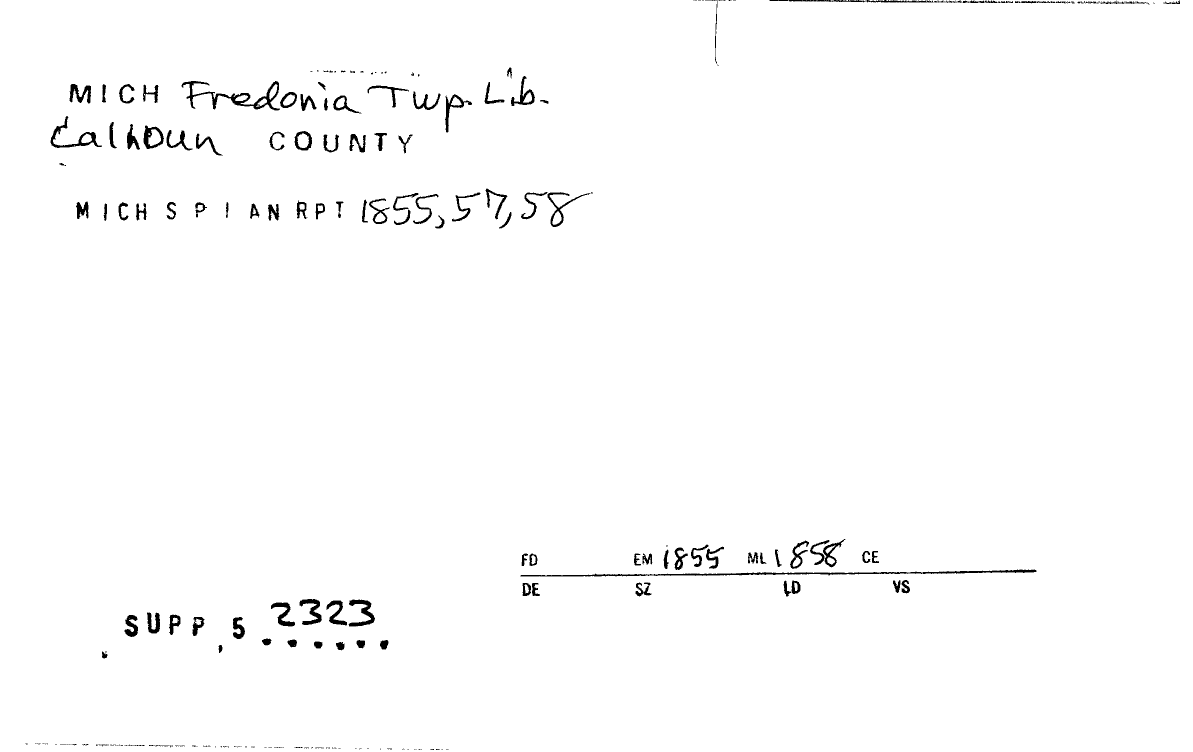 MICH Fredonia Twp. Lib.
Calhoun COUNTY
MICH S P I AN RPT 1855, 57, 58
FD EM 1855 ML 1858 CE
DE SZ LD VS
SUPP, 5 2323
......